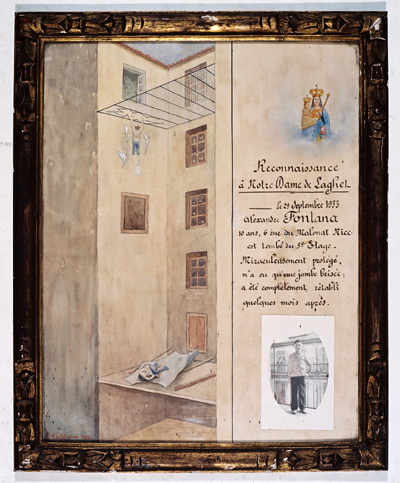 Reconnaissance
à Notre Dame de Laghet
le 29 Septembre 1953
Alexandre Fontana
10 ans, 6 rue du Malonat Nice
est tombé du 5e Etage.
Miraculeusement protégé,
n'a eu qu'une jambe brisée;
a été complètement rétabli
quelques mois après.